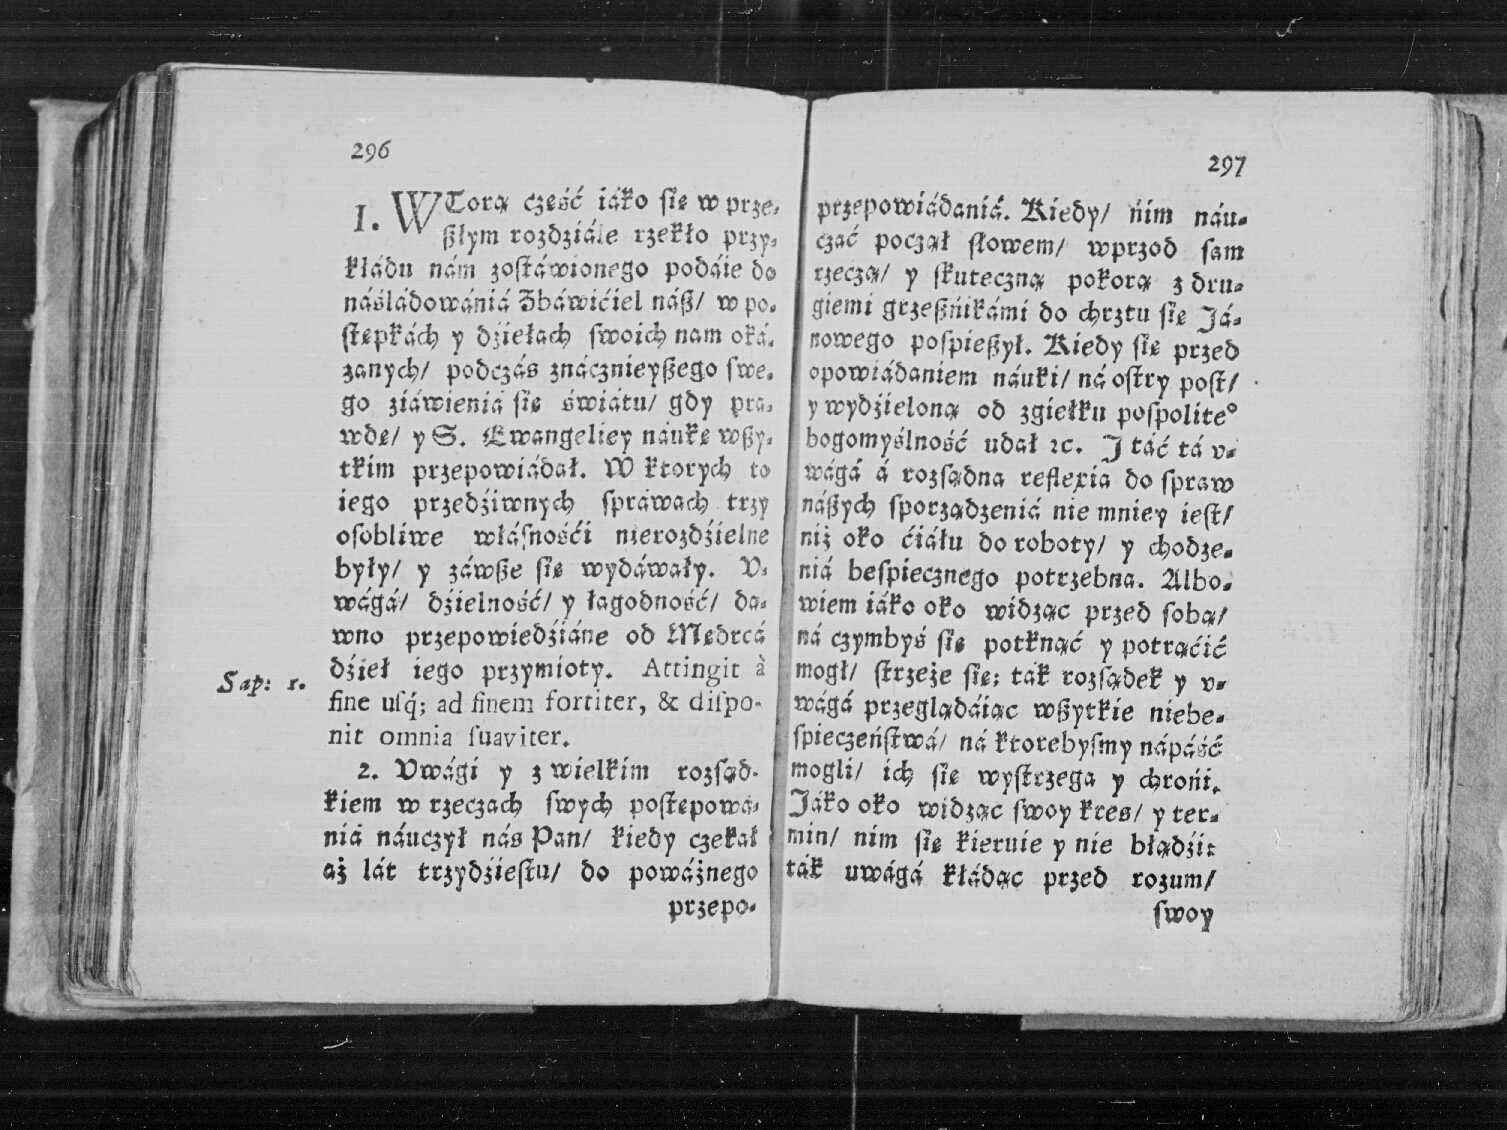 296
1. WTorą cżęść iáko się w prze-
ßłym rozdziále rzekło przy-
kłádu nám zostáwionego podáie do
náśládowániá Zbáwićiel náß/ w po-
stępkách y dźiełach swoich nam oká-
zanych/ podczás znácznieyßego swe-
go ziáwieniá się świátu/ gdy pra-
wdę/ y S. Ewangeliey náukę wßy-
tkim przepowiádał. W ktorych to
iego przedźiwnych spráwach trzy
osobliwe włásnośći nierozdźielne
były/ y záwße się wydáwały. V-
wágá/ dźielność/ y łagodność/ da-
wno przepowiedźiáne od Mędrcá
dźieł iego przymioty. Attingit à
fine uſq́; ad finem fortiter, & diſpo-
nit omnia ſuaviter.
Sap: 1.
2. Vwági y z wielkim rozsąd-
kiem w rzeczach swych postępowá-
niá náuczył nás Pan/ kiedy czekał
aż lát trzydźiestu/ do poważnego
przepo-
297
przepowiádaniá. Kiedy/ ńim náu-
czáć począł słowem/ wprzod sam
rzeczą/ y skuteczną pokorą z dru-
giemi grzeßńikámi do chrztu się Já-
nowego pospießył. Kiedy się przed
opowiádaniem náuki/ ná ostry post/
y wydźieloną od zgiełku pospolite°
bogomyślność udał ꝛc. J táć tá v-
wágá á rozsądna reflexia do spraw
náßych sporządzeniá nie mniey iest/
niż oko ćiáłu do roboty/ y chodze-
niá bespiecznego potrzebna. Albo-
wiem iáko oko widząc przed sobą/
ná czymbyś się potknąć y potrąćić
mogł/ strzeże się; ták rozsądek y v-
wágá przeglądáiąc wßytkie niebe-
spieczeństwá/ ná ktorebysmy nápáść
mogli/ ich się wystrzega y chrońi.
Jáko oko widząc swoy kres/ y ter-
min/ nim się kieruie y nie błądźi:
ták uwágá kłádąc przed rozum/
swoy